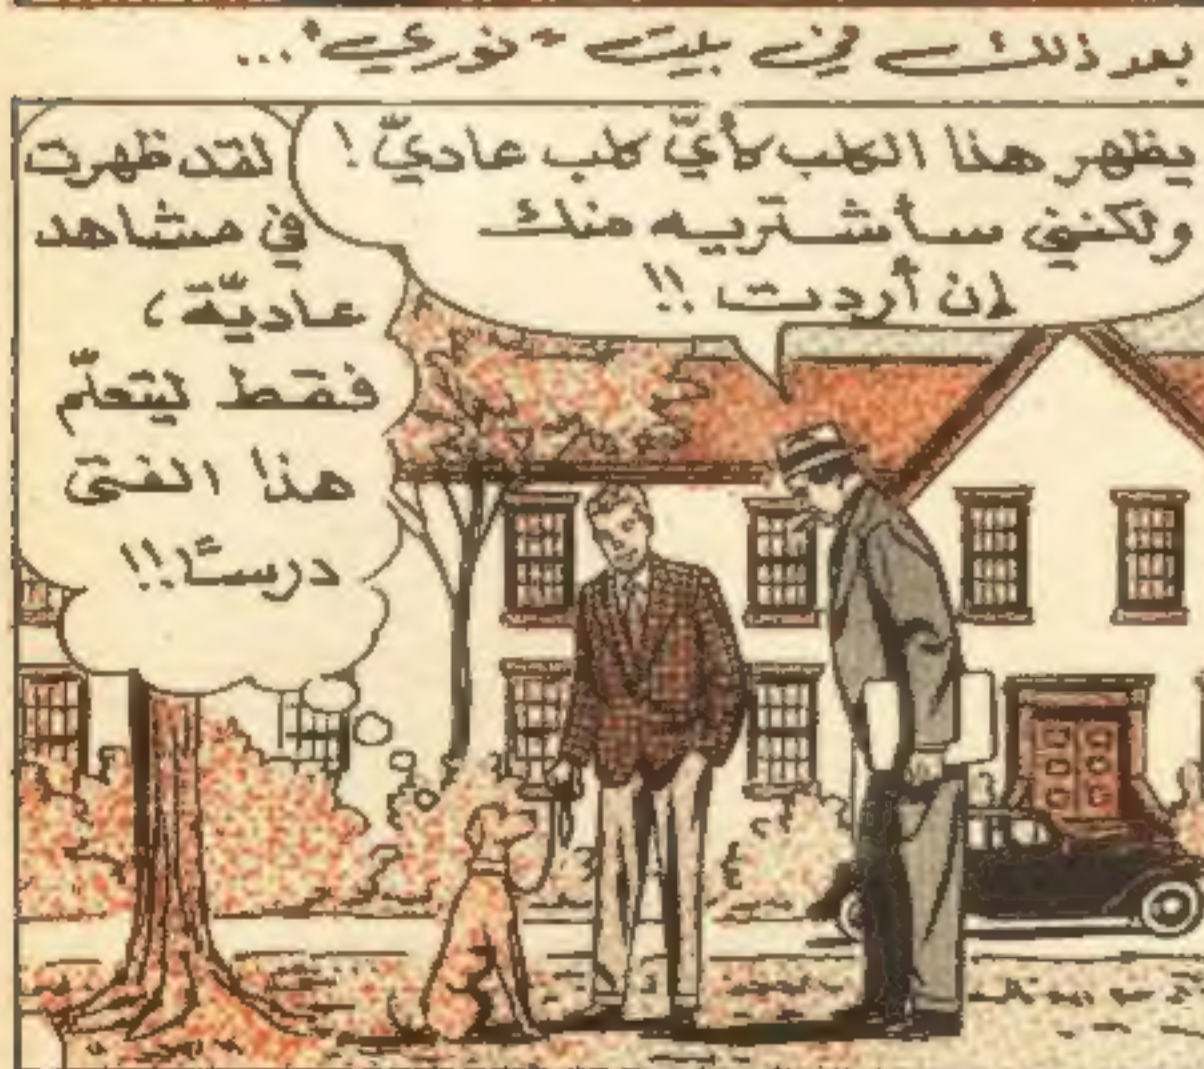 بعد ذلك في بيت "نوري"...
يظهر هذا الكلب كأيّ كلب عاديّ!
ولكنني سأشتريه منك
إن أردت!!
لقد ظهرت
في مشاهد
عاديّة،
فقط ليتعلّم
هذا الفتى
درسًا!!